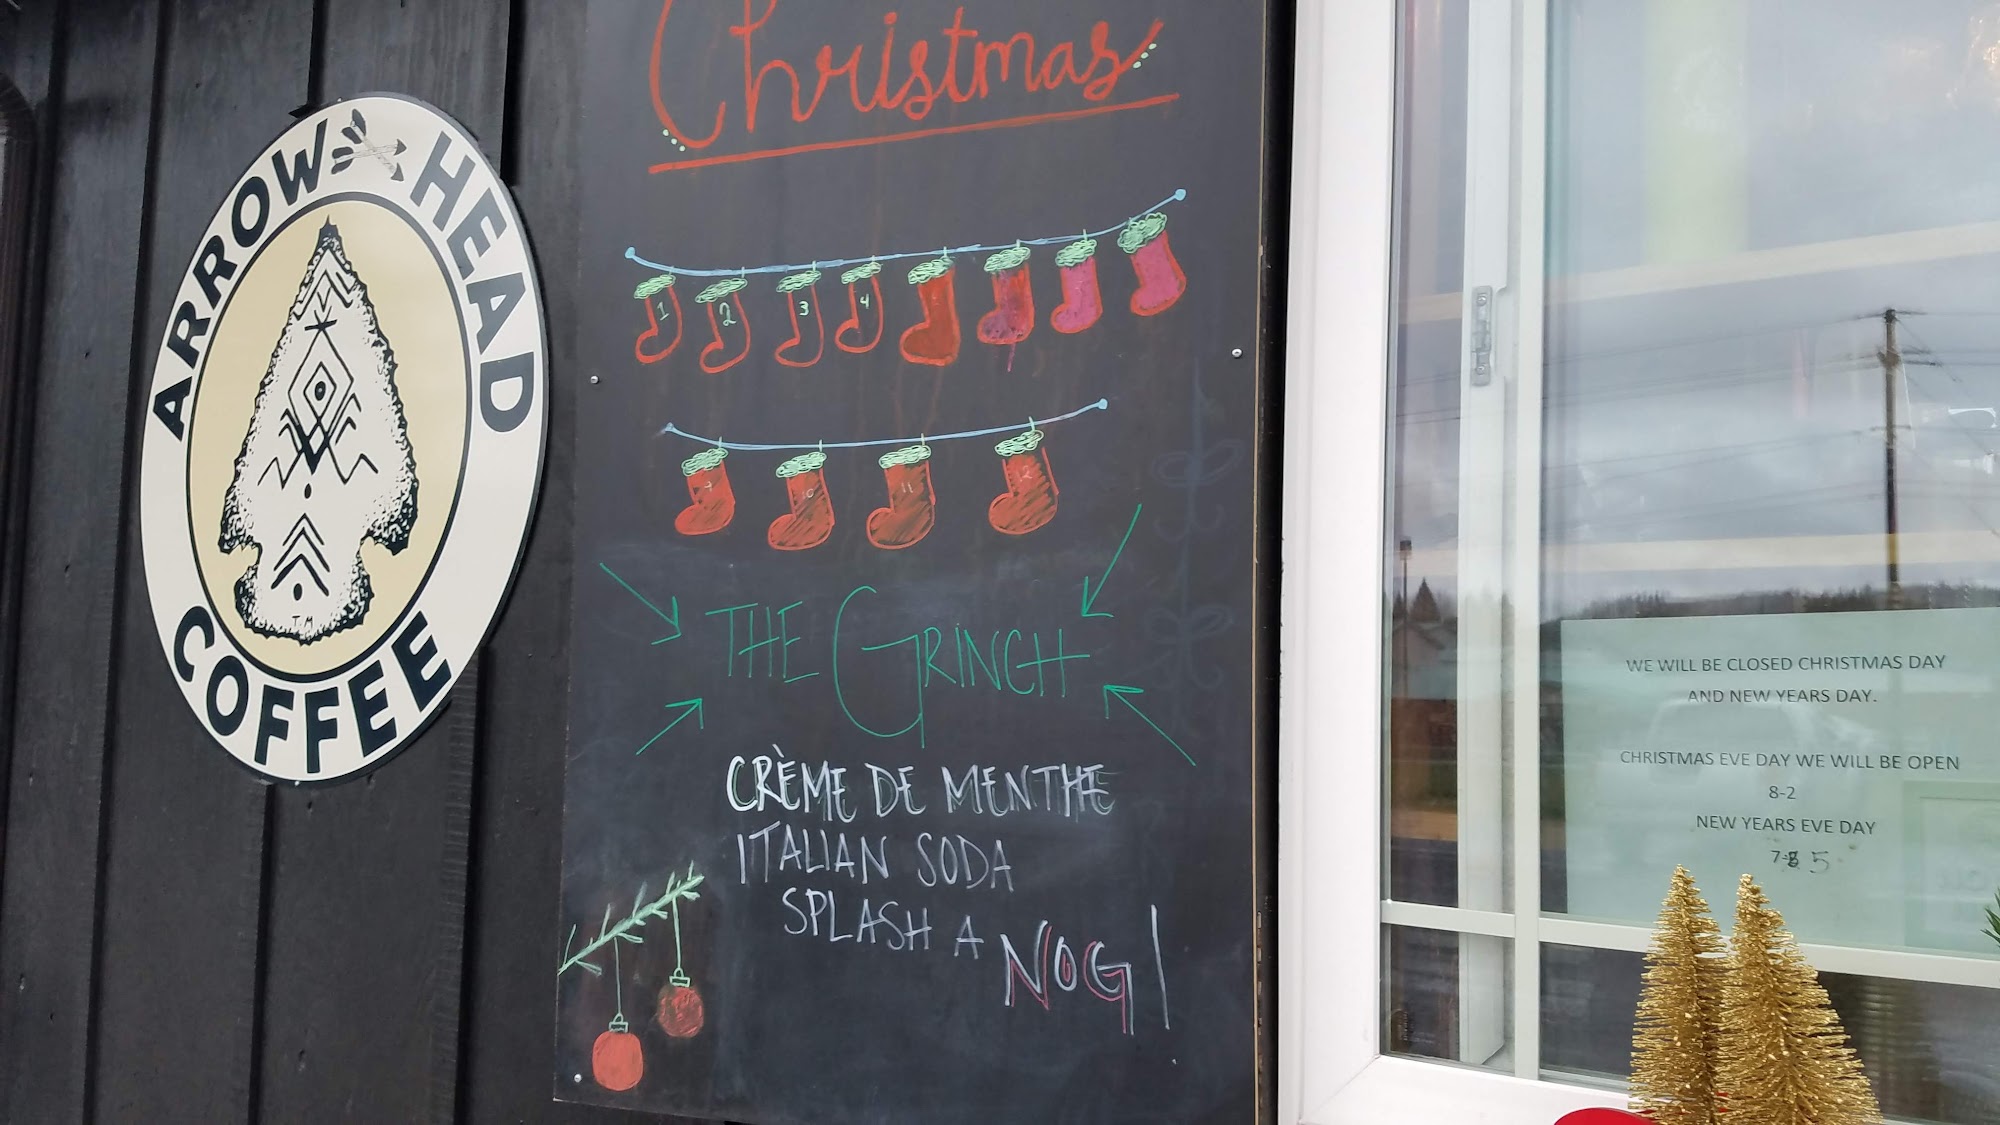 ARROW HEAD
COFFEE
T.M
Christmas
1 2 3 4
9 10 11 12
THE GRINCH
CRÈME DE MENTHE
ITALIAN SODA
SPLASH A NOG!
WE WILL BE CLOSED CHRISTMAS DAY
AND NEW YEARS DAY.
CHRISTMAS EVE DAY WE WILL BE OPEN
8-2
NEW YEARS EVE DAY
7-5